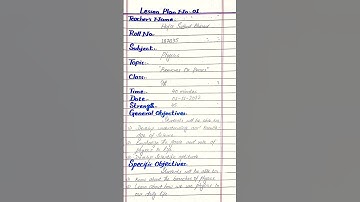 Lesson Plan No: 01
Teacher's Name:
Hafiz Saeed Ahmad
Roll No:
Subject:
Physics
Topic:
"Branches Of Physics"
Class:
9th
Time:
40 minutes
Date:
Strength:
General Objectives:
Students will be able to:
Develop understanding and knowledge of Science
Emphasize the goals and role of physics in life
Develop Scientific aptitude
Specific Objectives:
Students will be able to:
Know about the branches of physics
Learn about how we use physics in our daily life